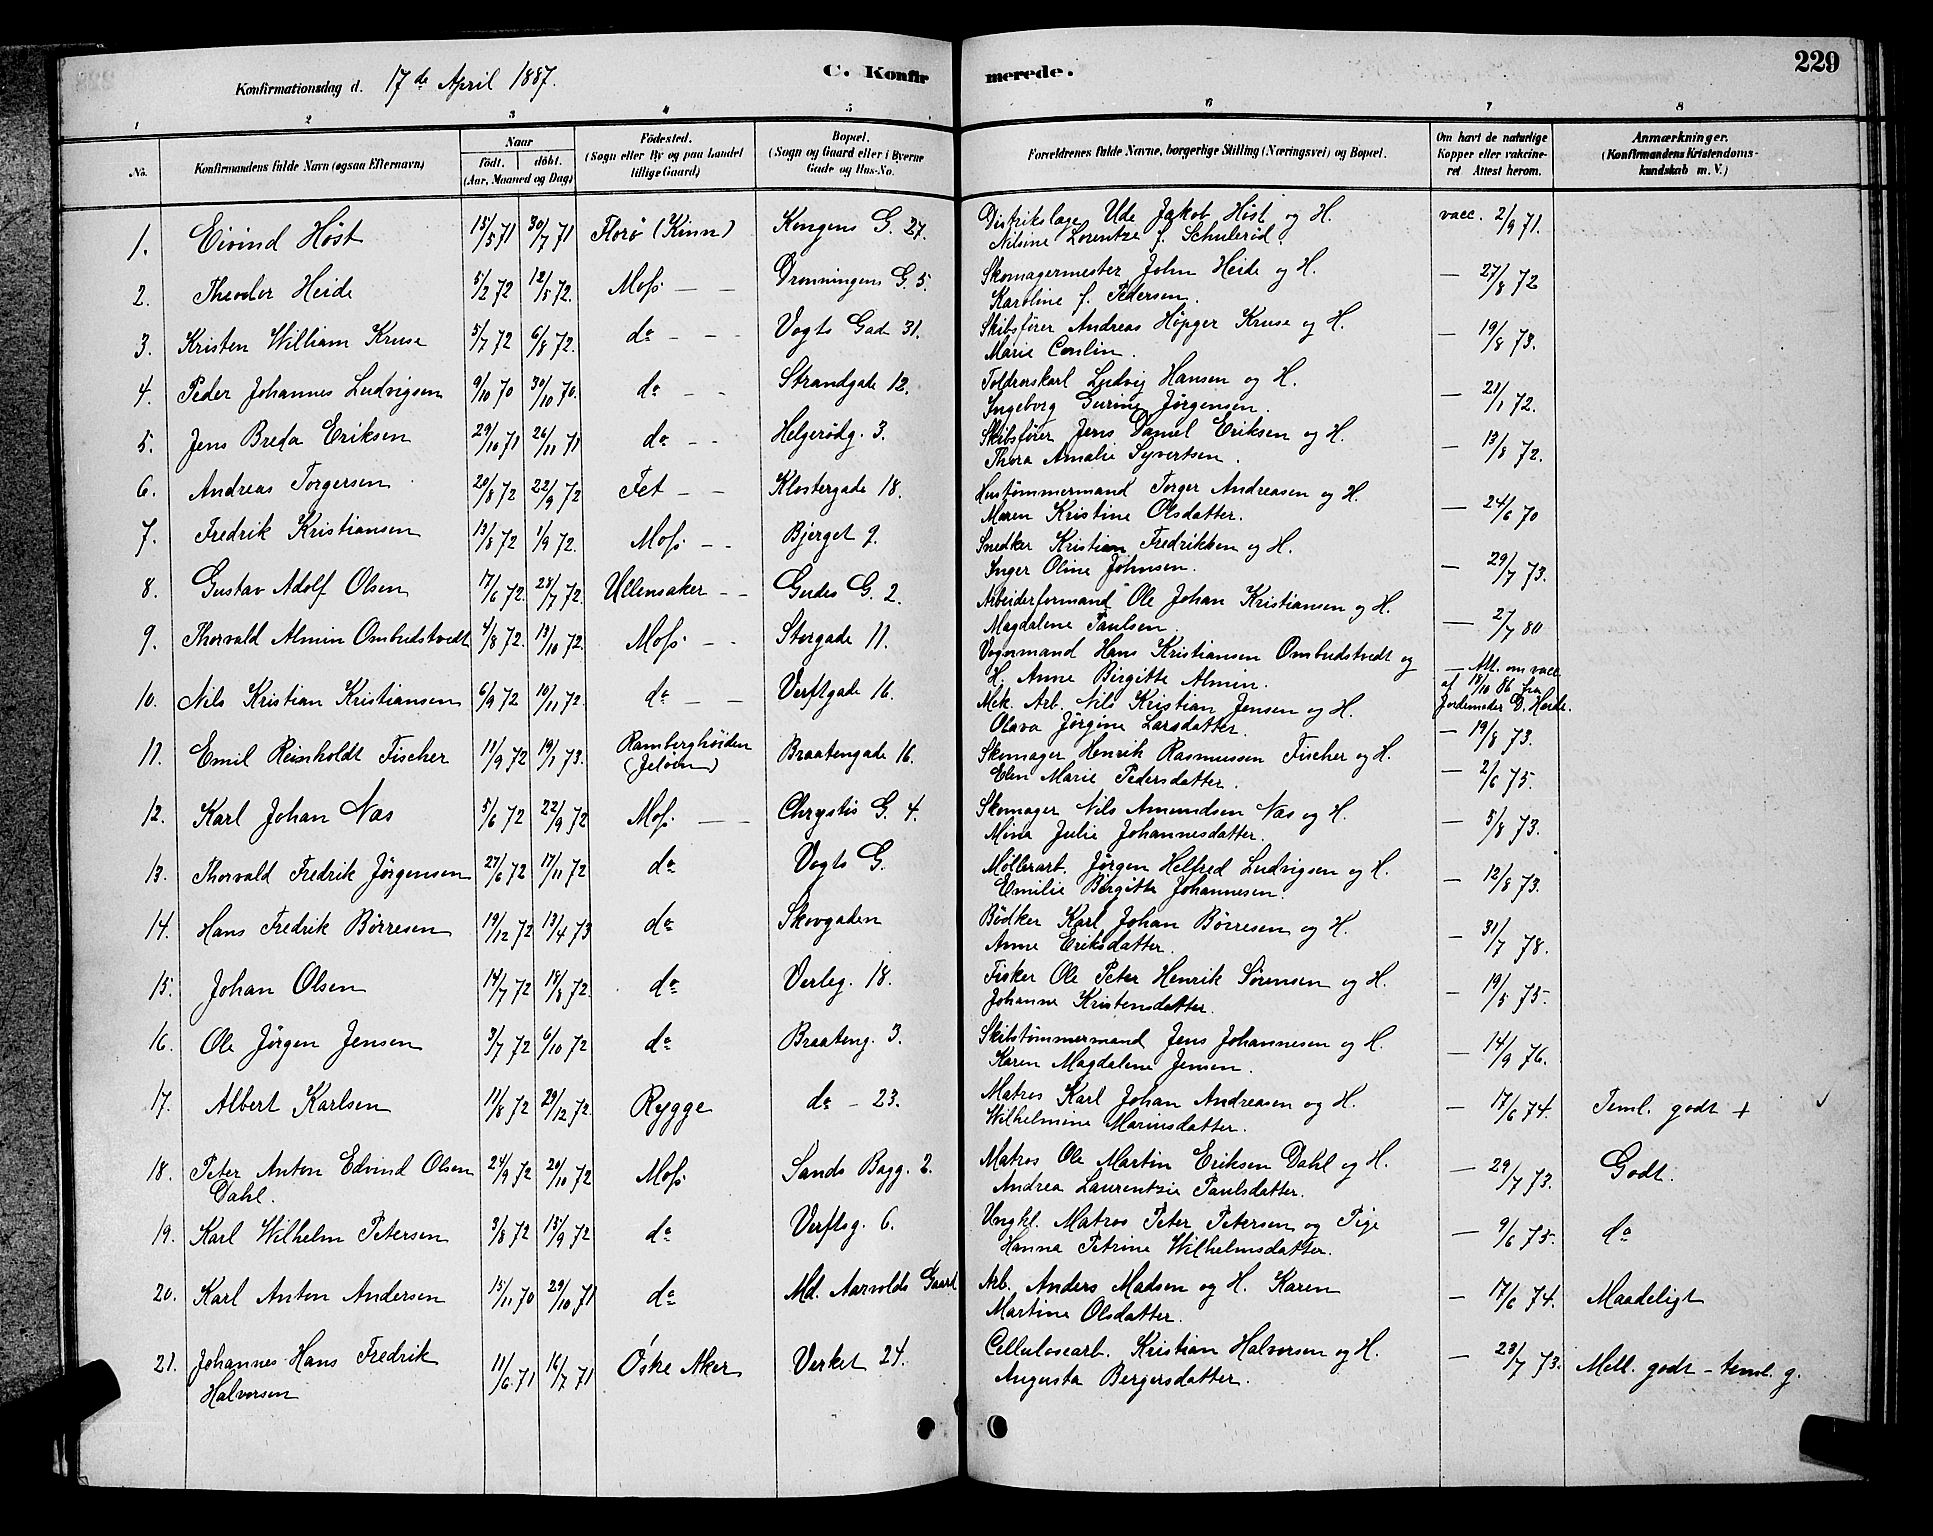 Konfirmationsdag d. 17de April 1887.
C. Konfir merede.
229
1 2 3 4 5 6 7 8
No.
Konfirmandens fulde Navn (ogsaa Efternavn)
Naar
født. døbt.
(Aar, Maaned og Dag)
Födested.
(Sogn eller By og paa Landet
tillige Gaard)
Bopæl.
(Sogn og Gaard eller i Byerne
Gade og Hus-No.
Forældrenes fulde Navne, borgerlige Stilling (Næringsvei) og Bopæl.
Om havt de naturlige
Kopper eller vakcine-
ret Attest herom.
Anmærkninger.
(Konfirmandens Kristendoms-
kundskab m. V.)
1. Eivind Höst 15/5 71 30/7 71 Florø (Kinn) Kongens G. 27. Distriktslæge Ude Jakob Höst og H. vacc. 2/9 71.
Nilsine Lorentze f. Schulerød.
2. Theodor Heide 5/2 72 12/5 72. Moss — — Dronningens G. 5. Skomagermester John Heide og H. — 27/8 72
Karoline f. Pedersen.
3. Kristen William Kruse 5/7 72 6/8 72. do - - Vogts Gad. 31. Skibsfører Andreas Höpger Kruse og H. — 19/8 73.
Marie Conlin.
4. Peder Johannes Ludvigsen 9/10 70 30/10 70. do - - Strandgade 12. Toldroskarl Ludvig Hansen og H. — 21/1 72.
Ingeborg Gurine Jørgensen.
5. Jens Breda Eriksen 29/10 71 26/11 71 do - - Helgerödg. 3. Skibsfører Jens Daniel Eriksen og H. — 13/8 72.
Thora Amalie Syvertsen.
6. Andreas Torgersen 20/8 72 22/9 72 Fet - - Klostergade 18. Hustømmermand Torger Andreasen og H. — 24/6 70
Maren Kristine Olsdatter.
7. Fredrik Kristiansen 13/8 72 1/9 72. Moss - - Bjerget 9. Snedker Kristian Fredriksen og H. — 29/7 73.
Inger Oline Johnsen.
8. Gustav Adolf Olsen 17/6 72. 28/7 72. Ullensaker - - Gudes G. 2. Arbeiderformand Ole Johan Kristiansen og H. — 2/7 80
Magdalene Paulsen.
9. Thorvald Almin Ombudstvedt 4/8 72. 13/10 72. Moss - - Storgade 11. Vognmand Hans Kristiansen Ombudstvedt og — Att. om vacc
H. Anne Birgitte Almin. af 18/10 86 fra
Jordemoder D. Heide.
10. Nils Kristian Kristiansen 6/9 72 10/11 72. do — — Verftgade 16. Mek. Arb. Nils Kristian Jensen og H. — 19/8 73.
Olava Jørgine Larsdatter.
11. Emil Reinholdt Fischer 11/9 72 19/1 73. Ramberghöiden (Jelöen) Braatengade 16. Skomager Henrik Rasmussen Fischer og H. — 2/6 75.
Elen Marie Pedersdatter.
12. Karl Johan Nas 5/6 72 22/9 72 Moss — — Chrystis G. 4. Skomager Nils Amundsen Nas og H. — 5/8 73.
Mina Julie Johannesdatter.
13. Thorvald Fredrik Jörgensen 27/6 72 17/11 72 do Vogts G. Møllerarb. Jørgen Helfred Ludvigsen og H. — 12/8 73.
Emilie Birgitte Johannesen.
14. Hans Fredrik Börresen 19/12 72 13/4 73 do Skovgaden Bödker Karl Johan Börresen og H. — 31/7 78.
Anne Eriksdatter.
15. Johan Olsen 14/7 72 18/8 72. do Verleg. 18. Fisker Ole Peter Henrik Sörensen og H. — 19/5 75.
Johanne Kristensdatter.
16. Ole Jörgen Jensen 3/7 72 6/10 72 do Braateng. 3. Skibstømmermand Jens Johannesen og H. — 14/9 76.
Karen Magdalene Jensen.
17. Albert Karlsen 11/8 72 29/12 72. Rygge do - 23. Matros Karl Johan Andreasen og H. — 17/6 74. Teml. godt +
Wilhelmine Mariusdatter.
18. Peter Anton Edvind Olsen 24/9 72 20/10 72 Moss Sands Bagg. 2. Matros Ole Martin Eriksen Dahl og H. — 29/7 73. Godt.
Dahl. Andrea Laurentzie Paulsdatter.
19. Karl Wilhelm Petersen 3/8 72 15/9 72 do Verftsg. 6. Ungkl. Matros Peter Petersen og Pige — 9/6 75. do
Hanna Petrine Wilhelmsdatter.
20. Karl Anton Andersen 15/11 70 29/10 71 do Md. Aarvolds Gaard Arb. Anders Madsen og H. Karen — 17/6 74. Maadeligt
Martine Olsdatter.
21. Johannes Hans Fredrik 11/6 71 16/7 71 Östre Aker Verket 24. Cellulosearb. Kristian Halvorsen og H. — 23/7 73. Mell. godt - teml. g.
Halvorsen Augusta Bergersdatter.